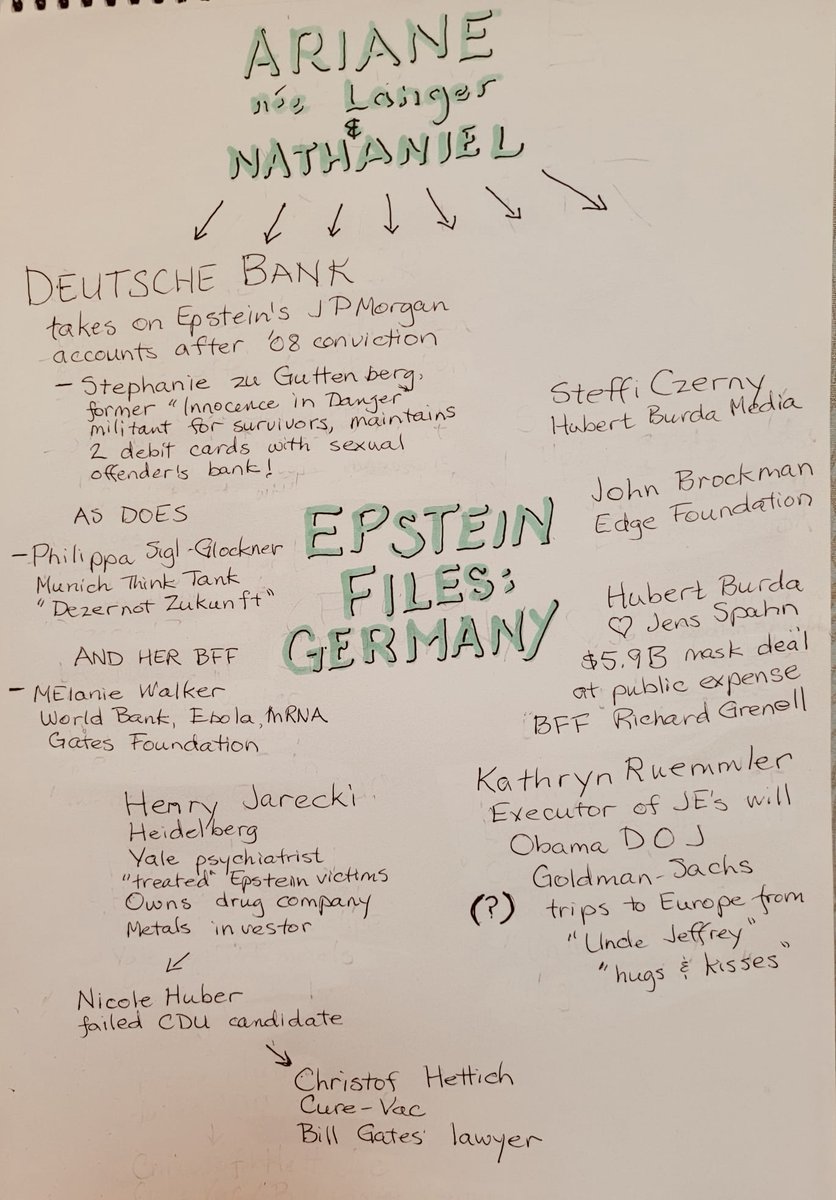 ARIANE
née Langer
&
NATHANIEL
DEUTSCHE BANK
takes on Epstein's JPMorgan
accounts after '08 conviction
- Stephanie zu Guttenberg,
former "Innocence in Danger"
militant for survivors, maintains
2 debit cards with sexual
offender's bank!
AS DOES
- Philippa Sigl-Glöckner
Munich Think Tank
"Dezernot Zukunft"
AND HER BFF
- MElanie Walker
World Bank, Ebola, mRNA
Gates Foundation
Henry Jarecki
Heidelberg
Yale psychiatrist
"treated" Epstein victims
Owns drug company
Metals investor
Nicole Huber
failed CDU candidate
Christof Hettich
Cure-Vac
Bill Gates' lawyer
EPSTEIN
FILES:
GERMANY
Steffi Czerny
Hubert Burda Media
John Brockman
Edge Foundation
Hubert Burda
♡ Jens Spahn
$5.9B mask deal
at public expense
BFF Richard Grenell
Kathryn Ruemmler
Executor of JE's will
Obama DOJ
Goldman-Sachs
(?) trips to Europe from
"Uncle Jeffrey"
"hugs & kisses"